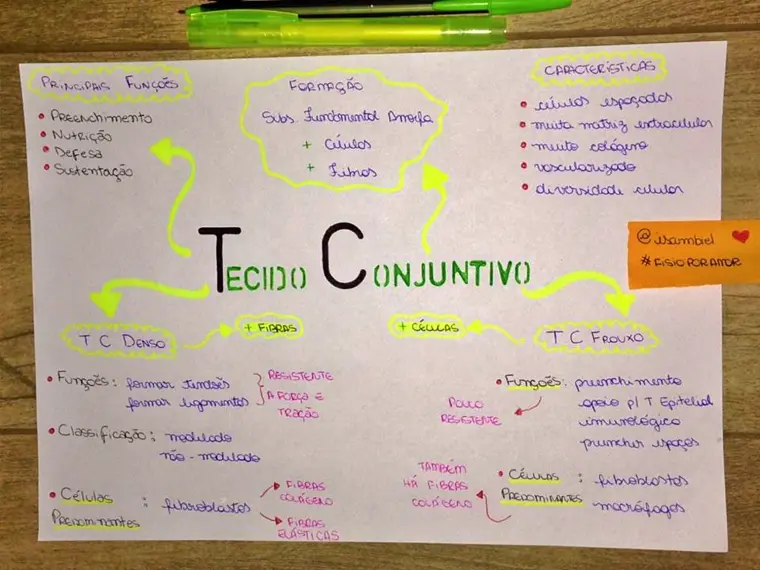 PRINCIPAIS FUNÇÕES
• PREENCHIMENTO
• NUTRIÇÃO
• DEFESA
• SUSTENTAÇÃO
FORMAÇÃO
Subs. Fundamental Amorfa
+ Células
+ Fibras
CARACTERÍSTICAS
• células espaçadas
• muita matriz extracelular
• muito colágeno
• vascularizado
• diversidade celular
TECIDO CONJUNTIVO
@isambiel
#FISIOPORAMOR
T C DENSO
+ FIBRAS
• FUNÇÕES: formar tendões
formar ligamentos
RESISTENTE
A FORÇA E
TRAÇÃO
• CLASSIFICAÇÃO: modulado
não-modulado
• CÉLULAS PREDOMINANTES: fibroblastos
FIBRAS
COLÁGENO
FIBRAS
ELÁSTICAS
+ CÉLULAS
T C FROUXO
• FUNÇÕES: preenchimento
apoio p/ T Epitelial
imunológico
preencher espaços
POUCO
RESISTENTE
• CÉLULAS PREDOMINANTES: fibroblastos
macrófagos
TAMBÉM
HÁ FIBRAS
COLÁGENO